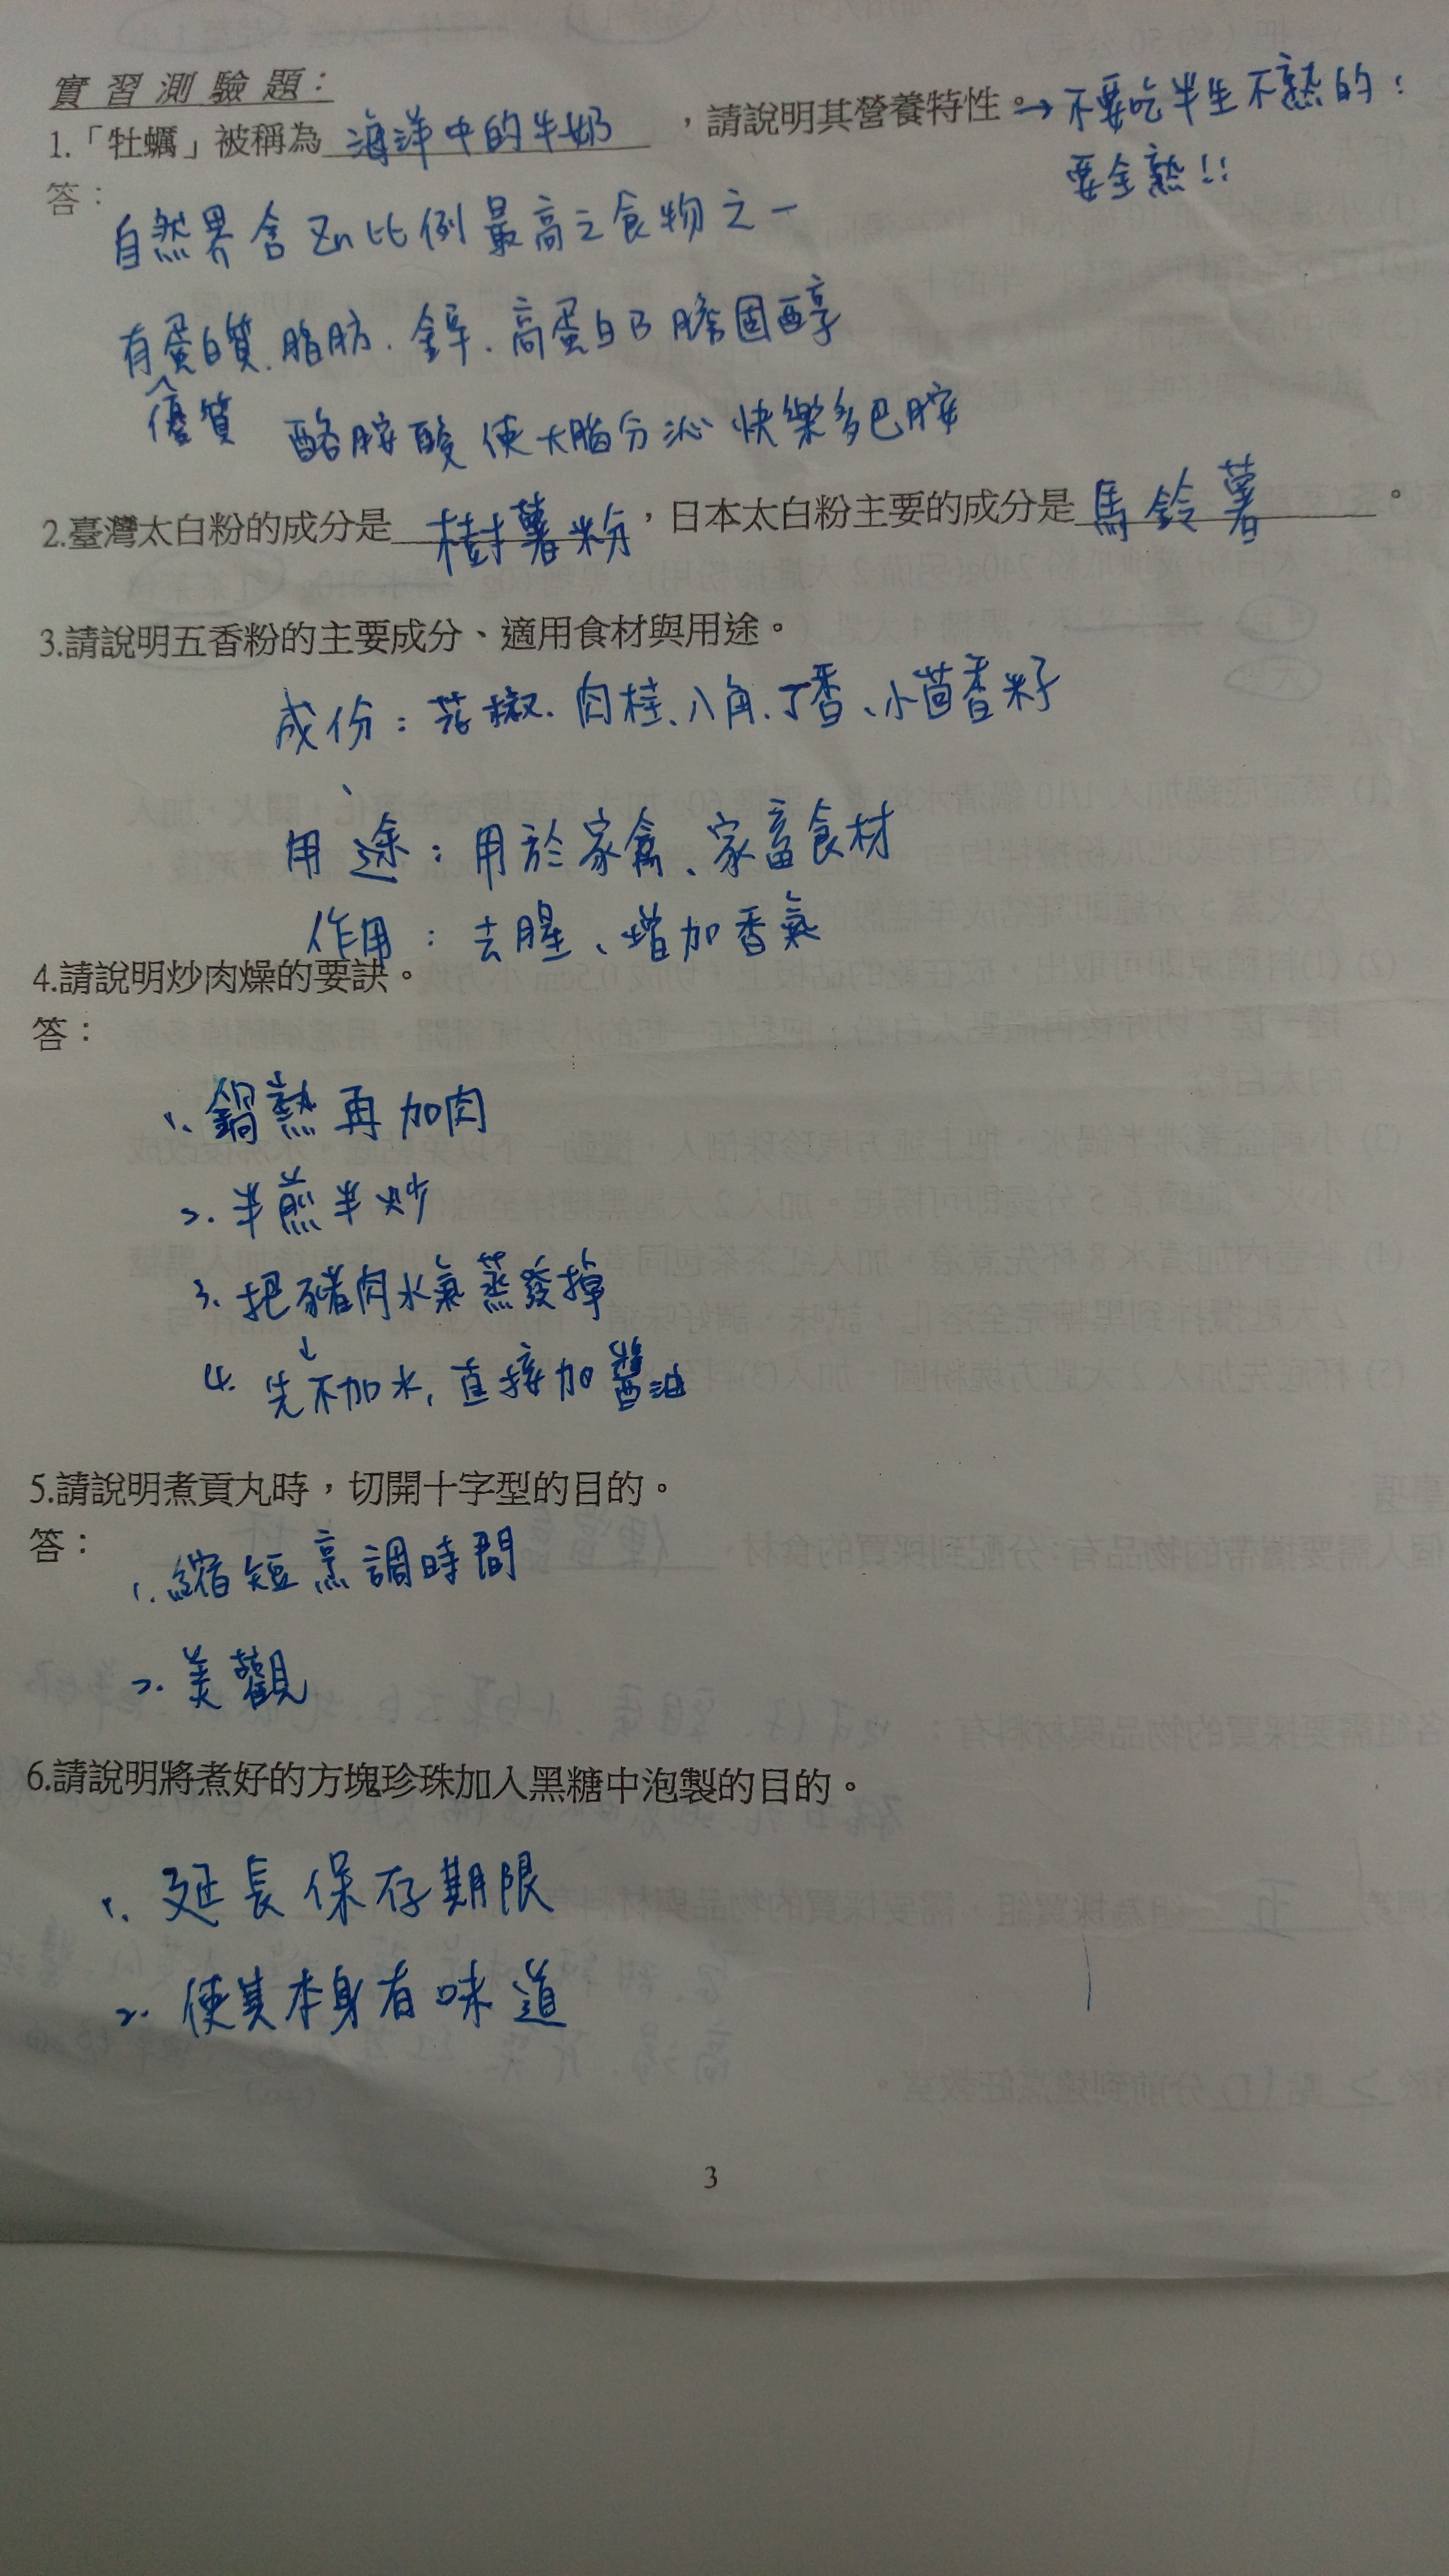 實習測驗題：
1.「牡蠣」被稱為 海洋中的牛奶 ，請說明其營養特性。→不要吃半生不熟的：
要全熟!!
答：
自然界含Zn比例最高之食物之一
有蛋白質、脂肪、鋅、高蛋白
膽固醇
優質
酪胺酸使大腦分泌快樂多巴胺
2.臺灣太白粉的成分是 樹薯粉，日本太白粉主要的成分是 馬鈴薯 。
3.請說明五香粉的主要成分、適用食材與用途。
成份：花椒、肉桂、八角、丁香、小茴香籽
用途：用於家禽、家畜食材
作用：去腥、增加香氣
4.請說明炒肉燥的要訣。
答：
1. 鍋熱再加肉
2. 半煎半炒
3. 把豬肉水氣蒸發掉
↓
4. 先不加水，直接加醬油
5.請說明煮貢丸時，切開十字型的目的。
答：
1. 縮短烹調時間
2. 美觀
6.請說明將煮好的方塊珍珠加入黑糖中泡製的目的。
1. 延長保存期限
2. 使其本身有味道
3